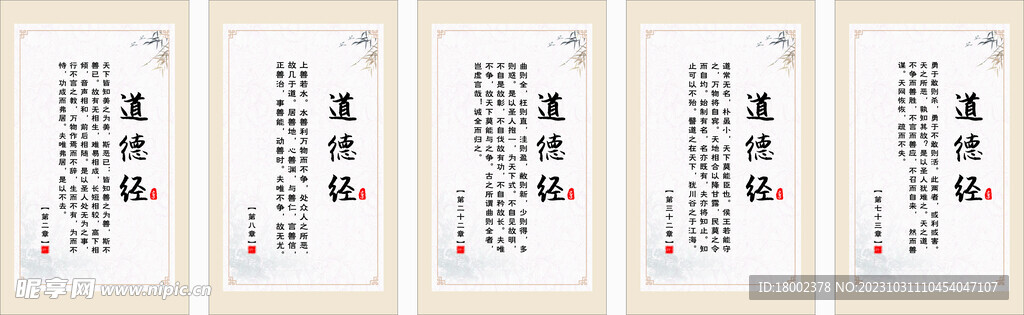 道德经
天下皆知美之为美,斯恶已;皆知善之为善,斯不
善已。故有无相生,难易相成,长短相较,高下相
倾,音声相和,前后相随。是以圣人处无为之事,
行不言之教,万物作焉而不辞,生而不有,为而不
恃,功成而弗居。夫唯弗居,是以不去。
【第二章】
道德经
上善若水。水善利万物而不争,处众人之所恶,
故几于道。居善地,心善渊,与善仁,言善信,
正善治,事善能,动善时。夫唯不争,故无尤。
【第八章】
道德经
曲则全,枉则直,洼则盈,敝则新,少则得,多
则惑。是以圣人抱一,为天下式。不自见故明,
不自是故彰,不自伐故有功,不自矜故长。夫唯
不争,故天下莫能与之争。古之所谓曲则全者,
岂虚言哉!诚全而归之。
【第二十二章】
道德经
道常无名,朴虽小,天下莫能臣也。侯王若能守
之,万物将自宾。天地相合以降甘露,民莫之令
而自均。始制有名,名亦既有,夫亦将知止。知
止可以不殆。譬道之在天下,犹川谷之于江海。
【第三十二章】
道德经
勇于敢则杀,勇于不敢则活。此两者,或利或害。
天之所恶,孰知其故?是以圣人犹难之。天之道,
不争而善胜,不言而善应,不召而自来, 然而善
谋。天网恢恢,疏而不失。
【第七十三章】
昵享网 www.nipic.cn
ID:18002378 NO:20231031110454047107